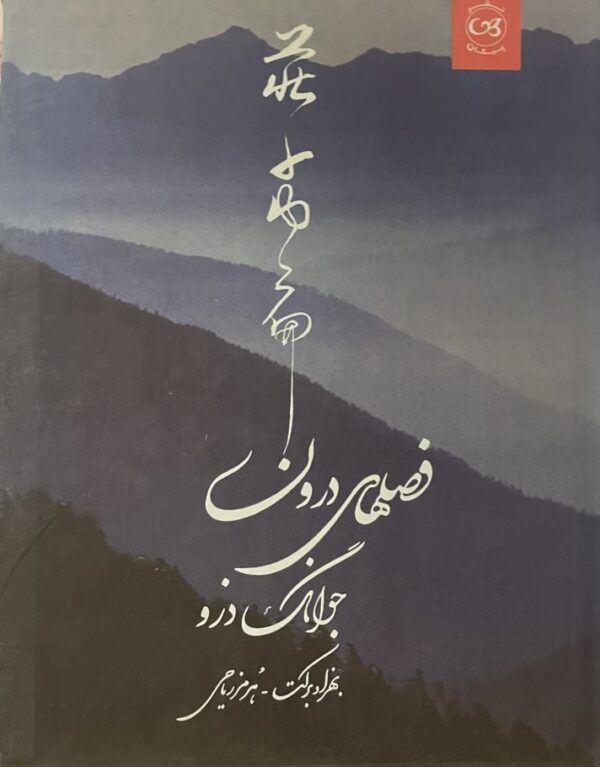 莊子内篇
فصلهای درون
جوانگ دزو
بهزاد برکت - هُرمز ریاحی